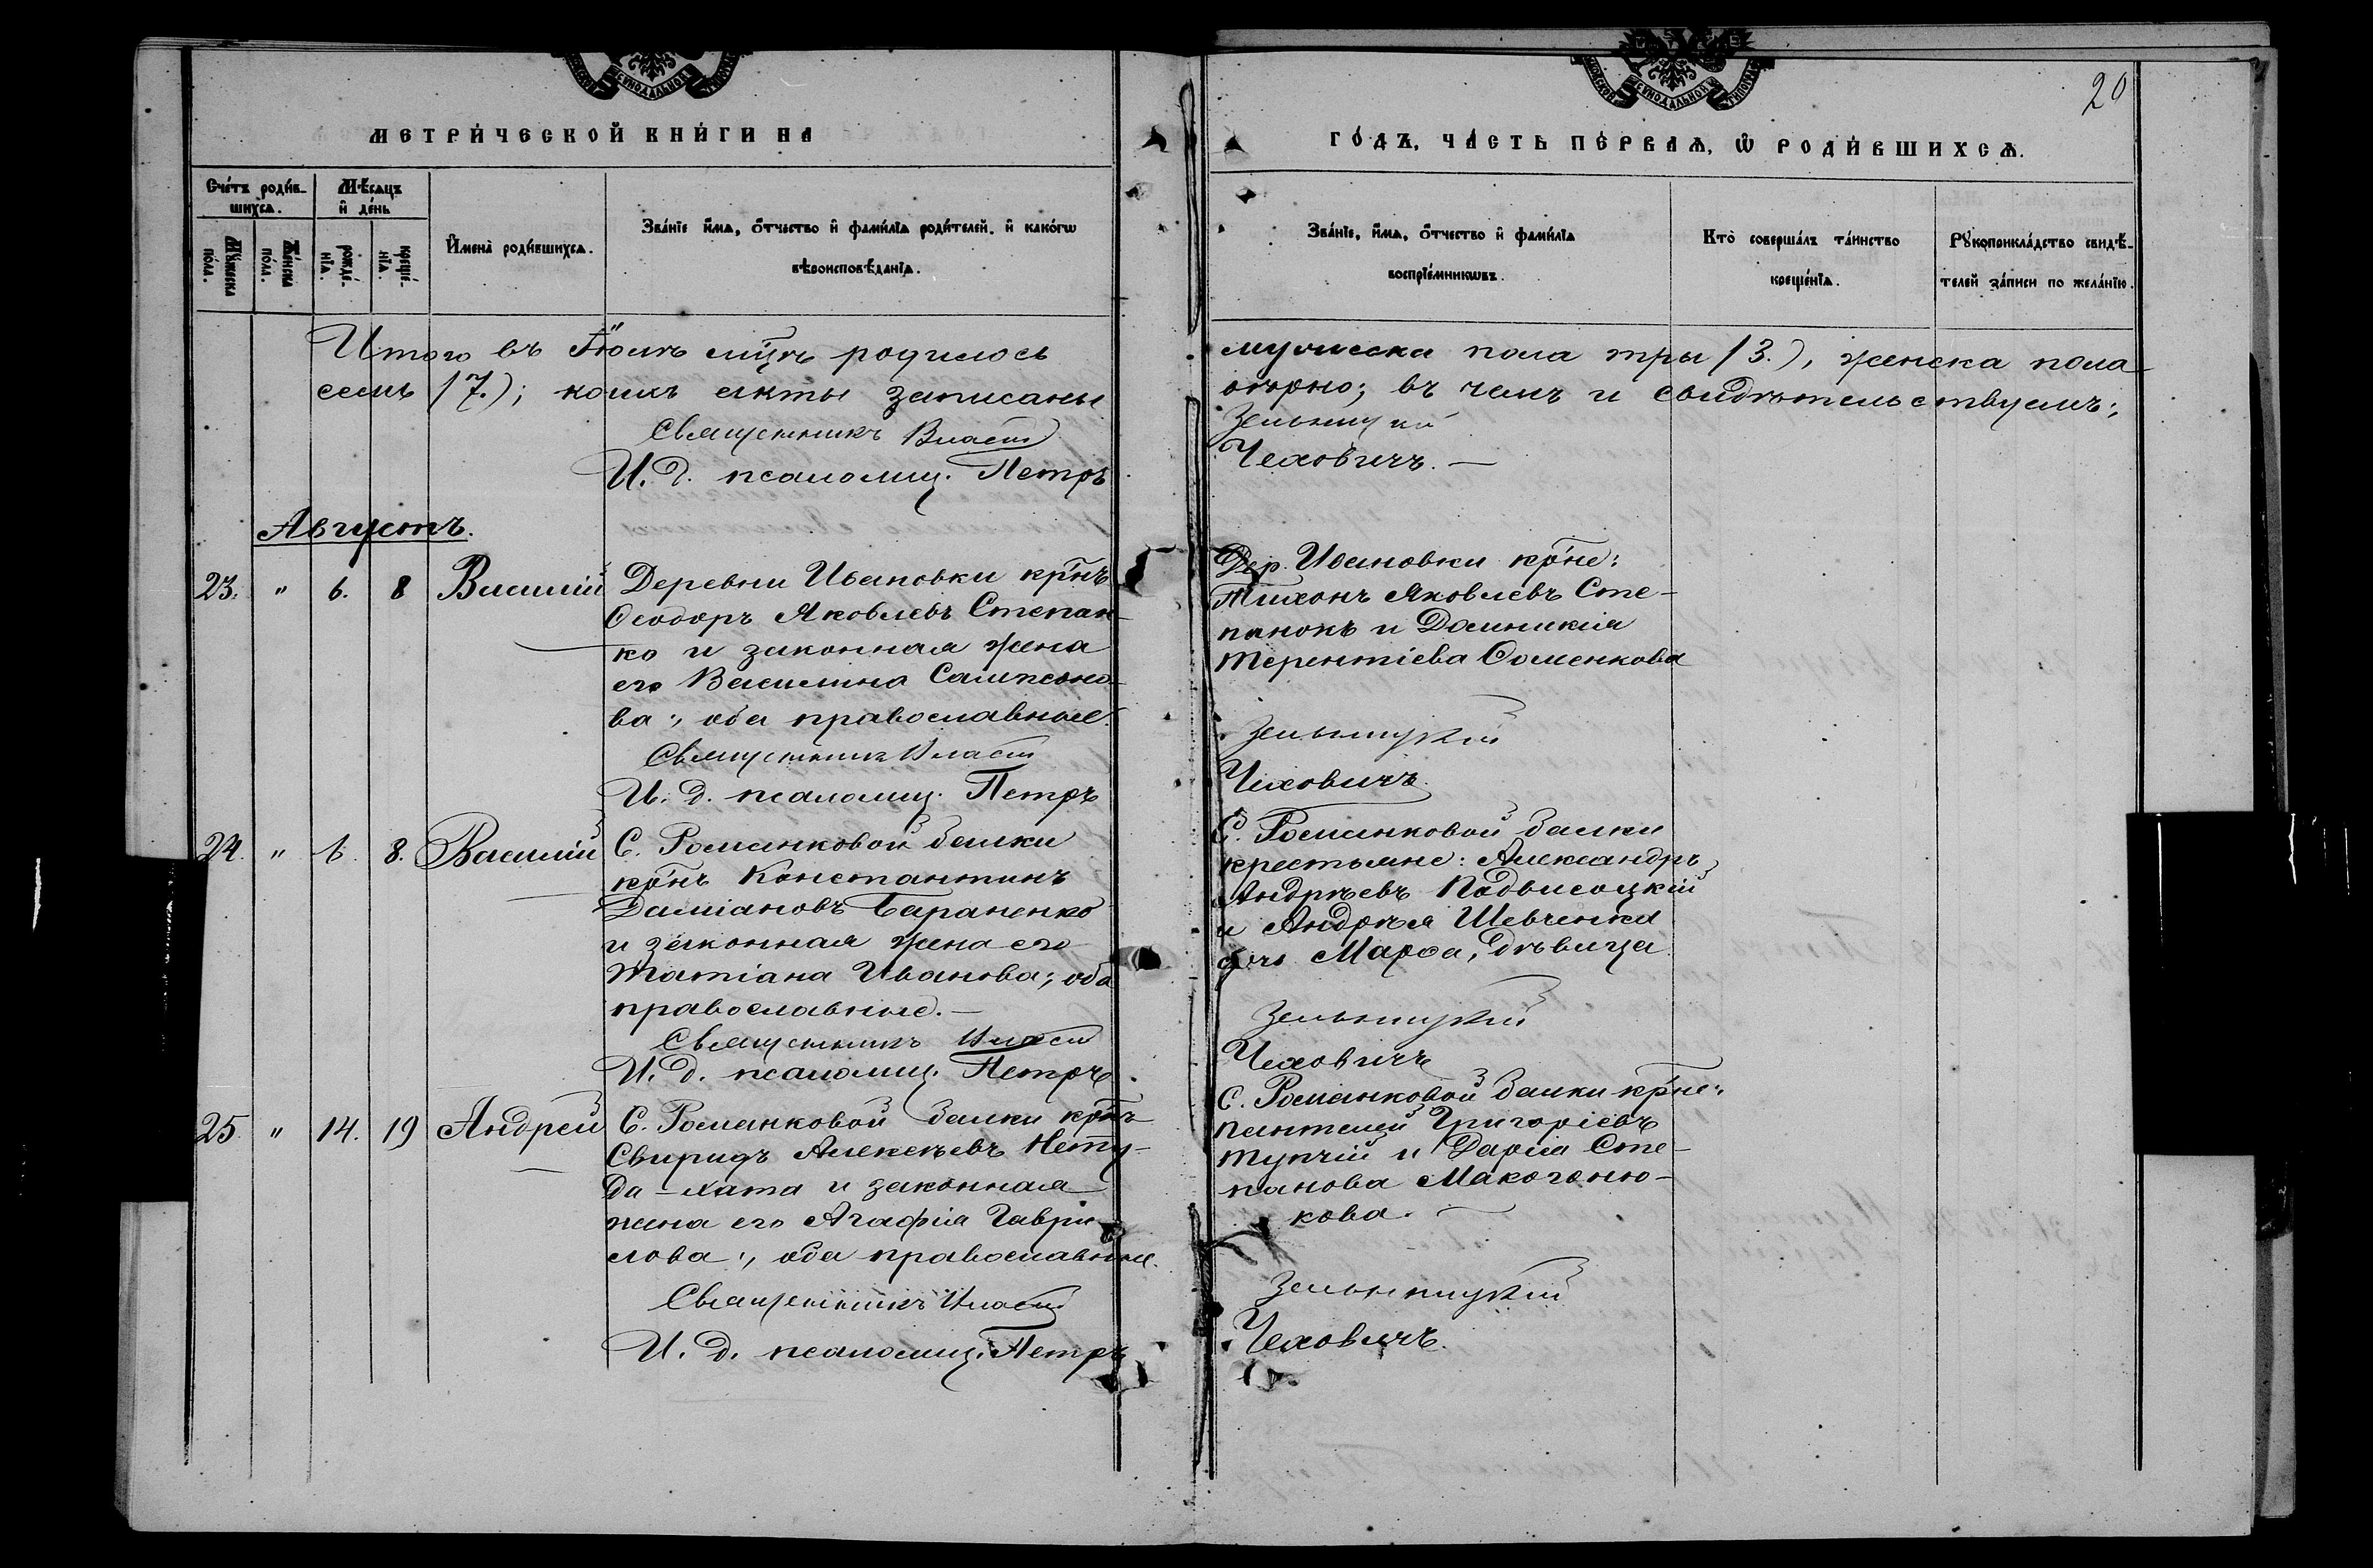 20
МЕТРИ́ЧЕСКОЙ КНИ́ГИ НА
ГО́ДЪ, ЧА́СТЬ ПЕ́РВАѦ, Ѽ РОДИ́ВШИХСѦ.
Сче́тъ роди́в-
шихсѧ.
Мꙋ́жеска по́ла.
Же́нска по́ла.
Мѣ́сѧцъ
и҆ де́нь
рожде́-нїѧ.
креще́-нїѧ.
И҆мена̀ роди́вшихсѧ.
Зва́нїе и҆́мѧ, ѻ҆́тчество и҆ фами́лїѧ роди́телей, и҆ како́гѡ
вѣроисповѣ́данїѧ.
Зва́нїе, и҆́мѧ, ѻ҆́тчество и҆ фами́лїѧ
воспрїе́мникѡвъ.
Кто̀ соверша́лъ та́инство
креще́нїѧ.
Рꙋкоприкла́дство свидѣ́-
телей за́писи по жела́нїю.
Итого въ Іюлѣ м̃цѣ родилось
семь (7.); коихъ акты записаны
Священникъ Власій
И. д. псаломщ. Петръ
мужеска пола три (3.), женска пола
вѣрно; въ чемъ и свидѣтельствуемъ:
Зельницкій
Чеховичъ. —
Августъ.
23. " 6. 8 Василій
Деревни Ивановки кр̃нъ
Ѳеодоръ Яковлевъ Степан-
ко и законная жена
его Василина Сампсоно-
ва; оба православные.
Священникъ Власій
И. д. псаломщ. Петръ
Дер. Ивановки кр̃не:
Тихонъ Яковлевъ Сте-
панокъ и Домникія
Терентіева Ѳоменкова
Зельницкій
Чеховичъ.
24. " 6. 8. Василій
С. Романковой балки
кр̃нъ Константинъ
Даміановъ Бараненко
и законная жена его
Татіана Иванова; оба
православные. —
Священникъ Власій
И. д. псаломщ. Петръ
С. Романковой балки
крестьяне: Александръ
Андреевъ Подвисоцкій
и Андрея Шевченка
дочь Марѳа, дѣвица
Зельницкій
Чеховичъ
25. " 14. 19 Андрей
С. Романковой балки кр̃нъ
Свиридъ Алексѣевъ Нету-
да-хата и законная
жена его Агафія Гаври-
лова; оба православные.
Священникъ Власій
И. д. псаломщ. Петръ
С. Романковой балки кр̃не:
Пантелей Григоріевъ
Тупчій и Дарія Сте-
панова Макогоню-
кова. —
Зельницкій
Чеховичъ.